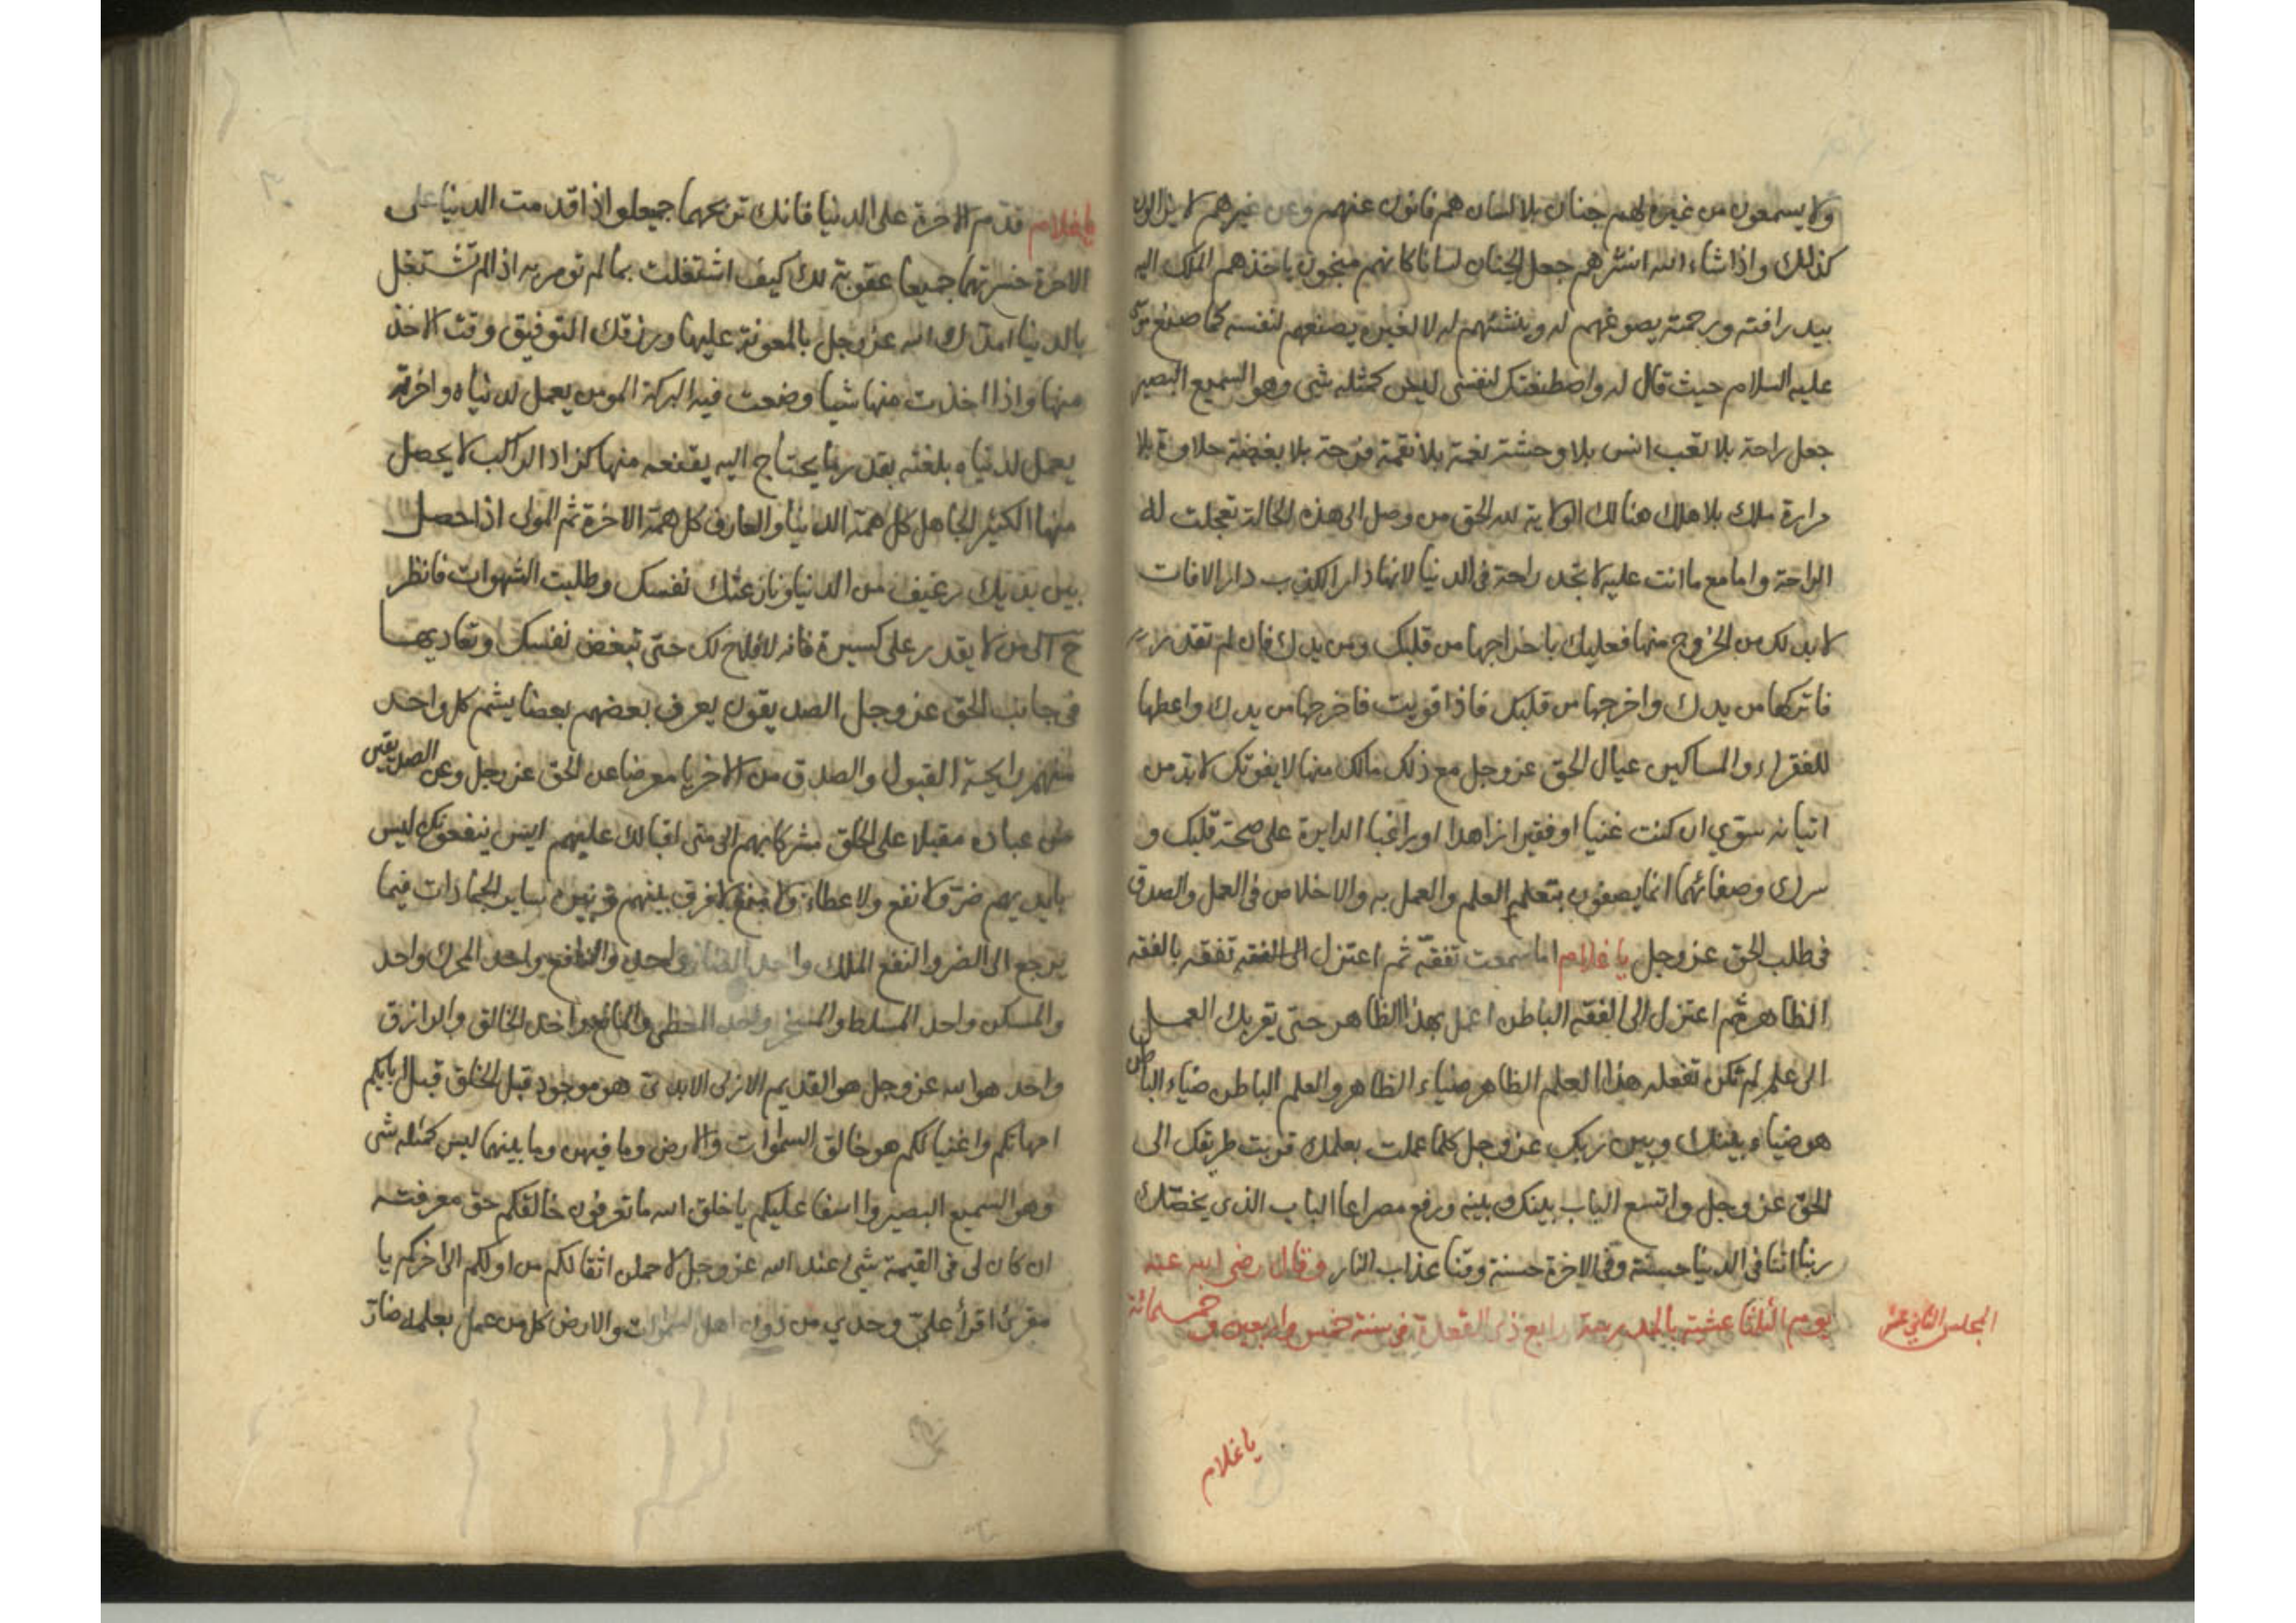 ولا يسمعون من غيره لهم جنان بلا لسان هم فانون عنهم وعن غيرهم لا يزالون
كذلك واذا شاء الله انشرهم جعل الجنان لسانا كانهم مبنجون ياخذهم الملك اليه
بيد رافته ورحمته يصوغهم له وينشئهم له لا لغيره يصنعهم لنفسه كما صنع موسى
عليه السلام حيث قال له واصطنعتك لنفسى ليس كمثله شى وهو السميع البصير
جعل راحة بلا تعب انس بلا وحشة نعمة بلا نقمة فرحة بلا بغضة حلاوة بلا
مرارة ملك بلا هلك هنالك الولاية لله الحق من وصل الى هذه الحالة تعجلت له
الراحة واما مع ما انت عليه لا تجد راحة فى الدنيا لانها دار الكذب دار الافات
لا بد لك من الخروج منها فعليك باخراجها من قلبك ومن يدك فان لم تقدر
فاتركها من يدك واخرجها من قلبك فاذا قويت فاخرجها من يدك واعطها
للفقراء والمساكين عيال الحق عز وجل مع ذلك مالك منها لا يفوتك لا بد من
اتيانه سوى ان كنت غنيا او فقيرا زاهدا او راغبا الدايرة على صحة قلبك و
سرك وصفائهما انما يصفون بتعلم العلم والعمل به والاخلاص فى العمل والصدق
فى طلب الحق عز وجل يا غلام اما سمعت تفقه ثم اعتزل الى الفقه تفقه بالفقه
الظاهر ثم اعتزل الى الفقه الباطن اعمل بهذا الظاهر حتى يقربك العمل
الى علم لم تكن تفعله هذا العلم الظاهر ضياء الظاهر والعلم الباطن ضياء الباطن
هو ضياء بينك وبين ربك عز وجل كلما عملت بعلمك قربت طريقك الى
الحق عز وجل واتسع الباب بينك وبينه ورفع مصراعا الباب الذى يخصك
ربنا اتنا فى الدنيا حسنة وفى الاخرة حسنة وقنا عذاب النار وقال رضى الله عنه
يوم الثلثا عشية بالمدرسة رابع ذى القعدة فى سنة خمس واربعين وخمسمائة
المجلس الثانى عشر
يا غلام
يا غلام قدم الاخرة على الدنيا فانك تربحهما جميعا واذا قدمت الدنيا على
الاخرة خسرتهما جميعا عقوبة لك كيف اشتغلت بما لم تومر به اذا لم تشتغل
بالدنيا امدك الله عز وجل بالمعونة عليها ورزقك التوفيق وقت الاخذ
منها واذا اخذت منها شيا وضعت فيه البركة المومن يعمل لدنياه واخرته
يعمل لدنياه بلغته بقدر ما يحتاج اليه يقنعه منها كزاد الراكب لا يحصل
منها الكثير الجاهل كل همه الدنيا والعارف كل همه الاخرة ثم المولى اذا حصل
بين يديك رغيف من الدنيا ونازعتك نفسك وطلبت الشهوات فانظر
ح الى من لا يقدر على كسيرة فانه لا فلاح لك حتى تبغض نفسك وتعاديها
فى جانب الحق عز وجل الصديقون يعرف بعضهم بعضا يشم كل واحد
منهم رايحة القبول والصدق من الاخر يا معرضا عن الحق عز وجل وعن الصديقين
من عباده مقبلا على الخلق مشركا بهم الى متى اقبالك عليهم ايش ينفعونك ليس
بايديهم ضر ولا نفع ولا عطاء ولا منع لا فرق بينهم وبين ساير الجمادات فيما
يرجع الى الضر والنفع الملك واحد الضار واحد والنافع واحد المحرك واحد
والمسكن واحد المسلط والمسخر واحد المعطى والمانع واحد الخالق والرازق
واحد هو الله عز وجل هو القديم الازلى الابدى هو موجود قبل الخلق قبل ابايكم
امهاتكم واغنيائكم هو خالق السموات والارض وما فيهن وما بينهما ليس كمثله شى
وهو السميع البصير وا اسفا عليكم يا خلق الله ما تعرفون خالقكم حق معرفته
ان كان لى فى القيمة شئ عند الله عز وجل لاحملن اثقالكم من اولكم الى اخركم يا
مقرئ اقرأ على وحدى من دون اهل السموات والارض كل من عمل بعلمه صار